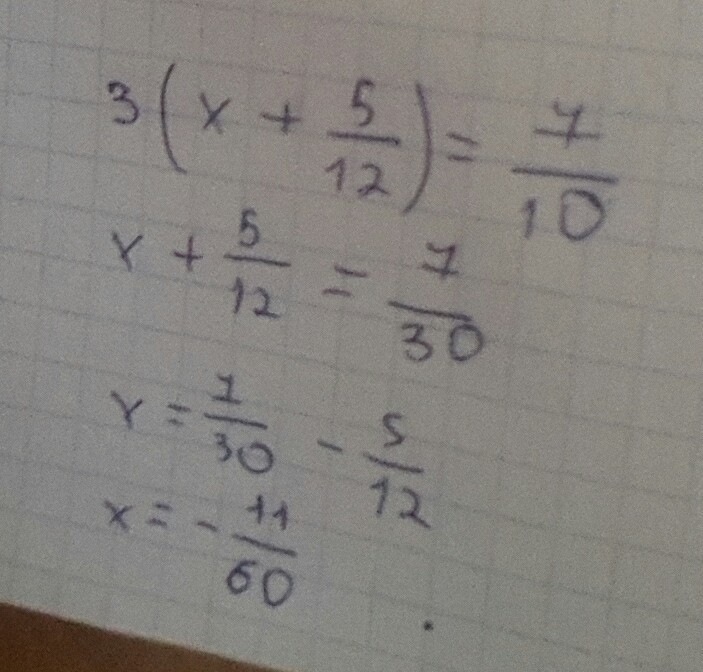 3(x + 5/12) = 7/10
x + 5/12 = 7/30
x = 7/30 - 5/12
x = - 11/60